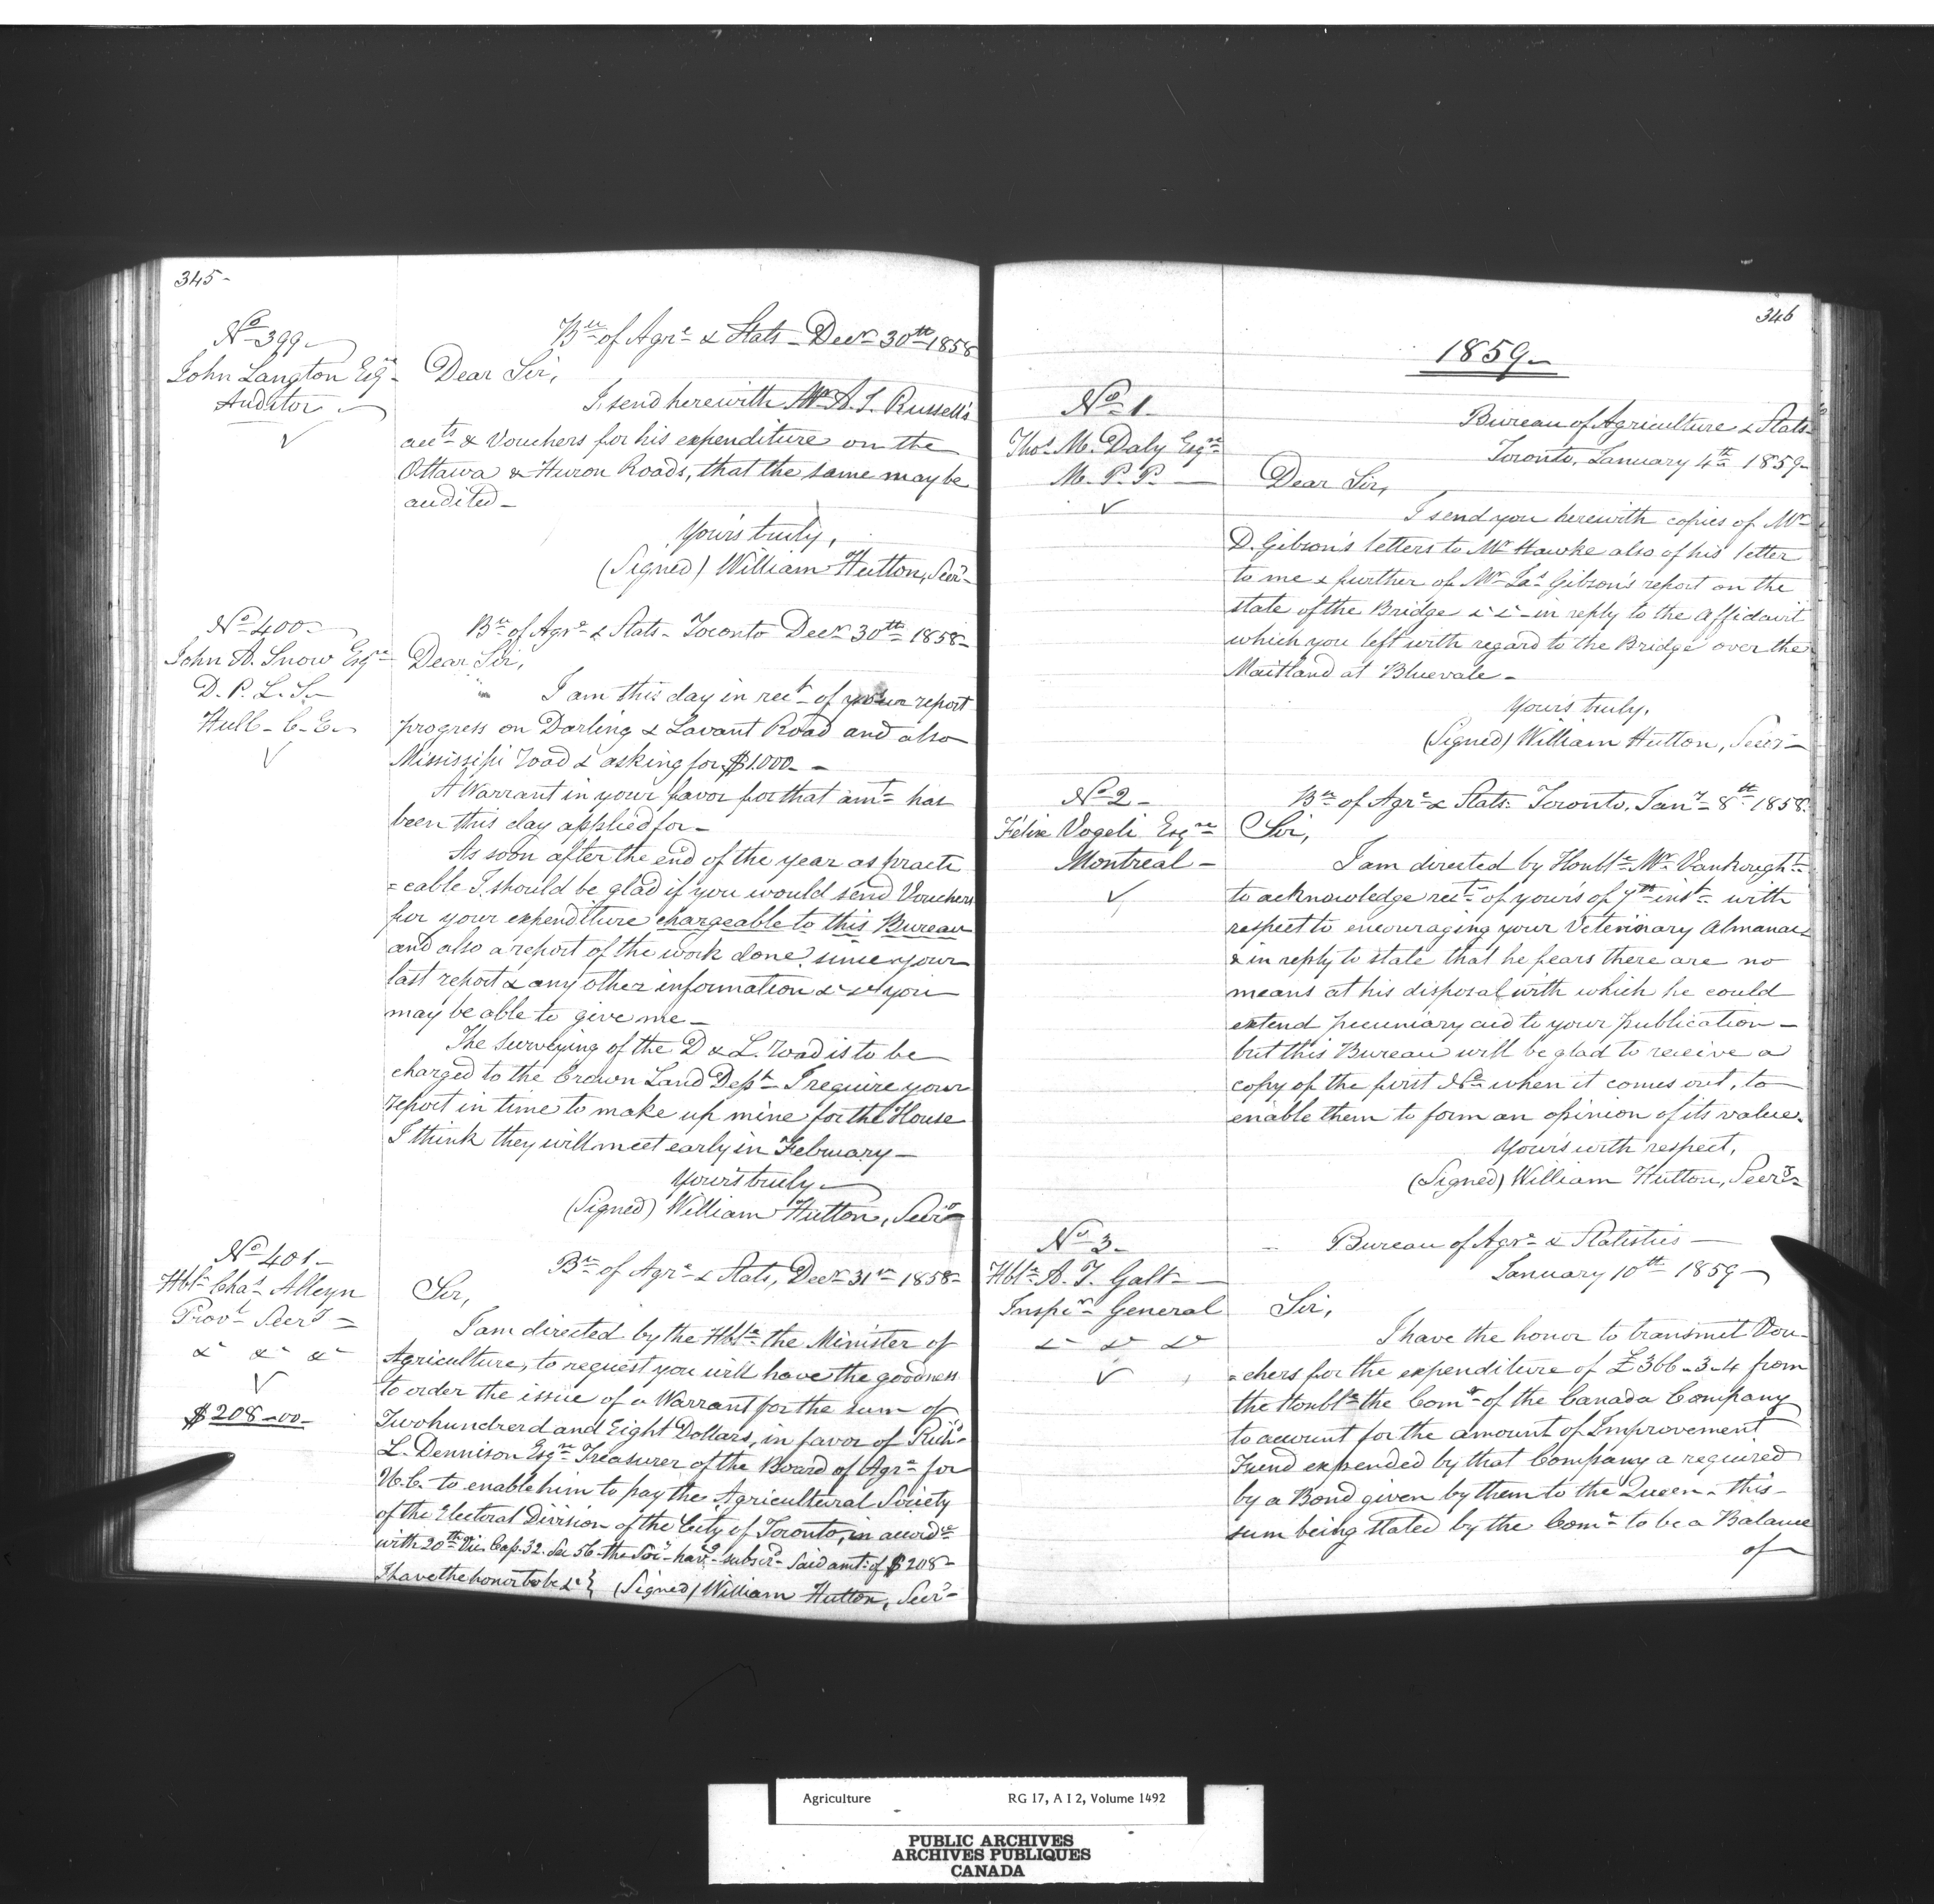 345-
No 399-
John Langton Esqre
Auditor
Bu of Agre & Stats - Decr 30th 1858
Dear Sir,
I send herewith Mr A. J. Russell's
accts & Vouchers for his expenditure on the
Ottawa & Huron Roads, that the same may be
audited-
Your's truly,
(Signed) William Hutton, Secry
No 400-
John A. Snow Esqre
D. P. L. S.
Hull - C. E.
Bu of Agre & Stats - Toronto Decr 30th 1858-
Dear Sir,
I am this day in rect of your report
progress on Darling & Lavant Road and also
Mississipi road & asking for $1000- -
A Warrant in your favor for that amt has
been this day applied for-
As soon after the end of the year as practi
=cable I should be glad if you would send Vouchers
for your expenditure chargeable to this Bureau
and also a report of the work done since your
last report & any other information &c &c you
may be able to give me-
The surveying of the D & L. road is to be
charged to the Crown Land Dept I require your
report in time to make up mine for the House
I think they will meet early in February-
Your's truly
(Signed) William Hutton, Secry
No 401-
Hble Chas Alleyn
Provl Secry =
&c &c &c
$208-00-
Bu of Agre & Stats, Decr 31st 1858-
Sir,
I am directed by the Hble the Minister of
Agriculture, to request you will have the goodness
to order the issue of a Warrant for the sum of
Two hundrerd and Eight Dollars, in favor of Richd
L. Dennison Esqre Treasurer of the Board of Agre for
U. C. to enable him to pay the Agricultural Society
of the Electoral Division of the City of Toronto, in accordce
with 20th Vic. Cap. 32. Sec 56- the Socy havg subscd said amt of $208-
I have the honor to be &c } (Signed) William Hutton, Secry
346
1859-
No 1-
Thos M. Daly Esqre
M. P. P.
Bureau of Agriculture & Stats
Toronto, January 4th 1859-
Dear Sir,
I send you herewith copies of Mr
D. Gibson's letters to Mr Hawke also of his letter
to me & further of Mr Jas Gibson's report on the
state of the Bridge &c &c in reply to the affidavit
which you left with regard to the Bridge over the
Maitland at Bluevale-
Your's truly,
(Signed) William Hutton, Secry
No 2-
Félix Vogeli Esqre
Montreal-
Bu of Agre & Stats. Toronto, Jany 8th 1858.
Sir,
I am directed by Honble Mr Vankought
to acknowledge rect of your's of 7th inst with
respect to encouraging your Veterinary Almanac
& in reply to state that he fears there are no
means at his disposal with which he could
extend pecuniary aid to your publication-
but this Bureau will be glad to receive a
copy of the first No when it comes out, to
enable them to form an opinion of its value.
Your's with respect,
(Signed) William Hutton, Secry
No 3-
Hble A. T. Galt
Inspr General
&c &c &c
Bureau of Agre & Statistics
January 10th 1859-
Sir,
I have the honor to transmit Vou-
=chers for the expenditure of £366-3-4 from
the Honble the Comr of the Canada Company
to account for the amount of Improvement
Fund expended by that Company a required
by a Bond given by them to the Queen- this
sum being stated by the Comr to be a Balance
of
Agriculture RG 17, A I 2, Volume 1492
PUBLIC ARCHIVES
ARCHIVES PUBLIQUES
CANADA